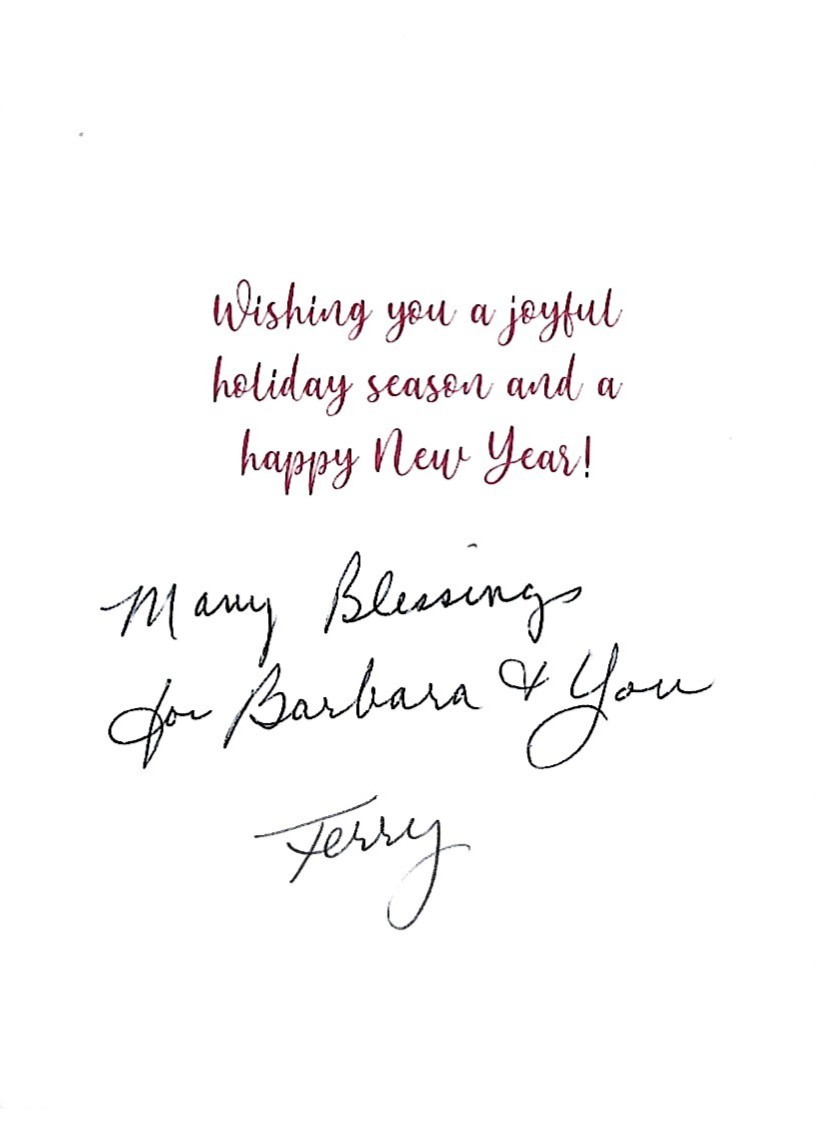 Wishing you a joyful
holiday season and a
happy New Year!
Many Blessings
for Barbara & You
Terry